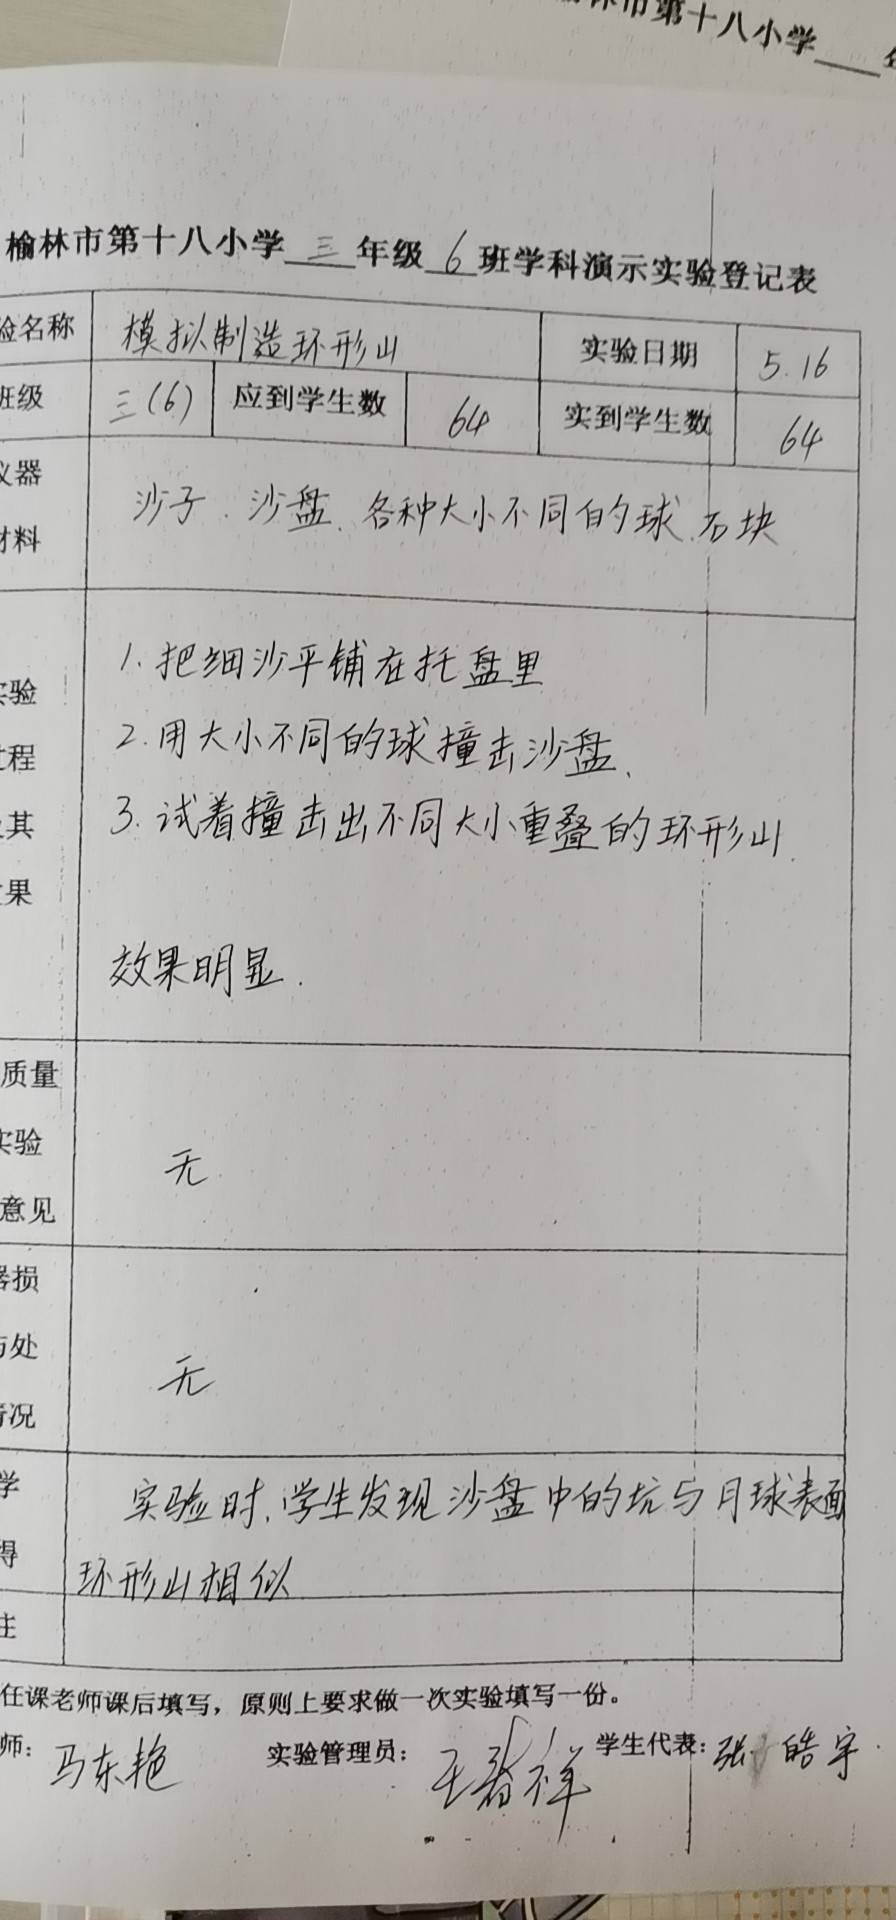 林市第十八小学
榆林市第十八小学三年级6班学科演示实验登记表
验名称 模拟制造环形山 实验日期 5.16
班级 三(6) 应到学生数 64 实到学生数 64
仪器
材料
沙子、沙盘、各种大小不同的球、石块
实验
过程
及其
效果
1. 把细沙平铺在托盘里
2. 用大小不同的球撞击沙盘、
3. 试着撞击出不同大小重叠的环形山.
效果明显.
质量
实验
意见
无
器损
与处
情况
无
学
得
实验时,学生发现沙盘中的坑与月球表面
环形山相似
注
任课老师课后填写，原则上要求做一次实验填写一份。
师: 马东艳 实验管理员: 王 祥 学生代表: 张皓宇